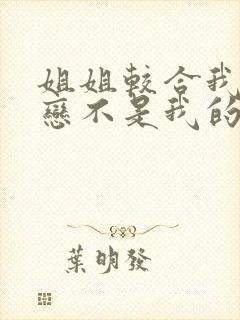 姐姐較合我
戀不是我的
葉明發